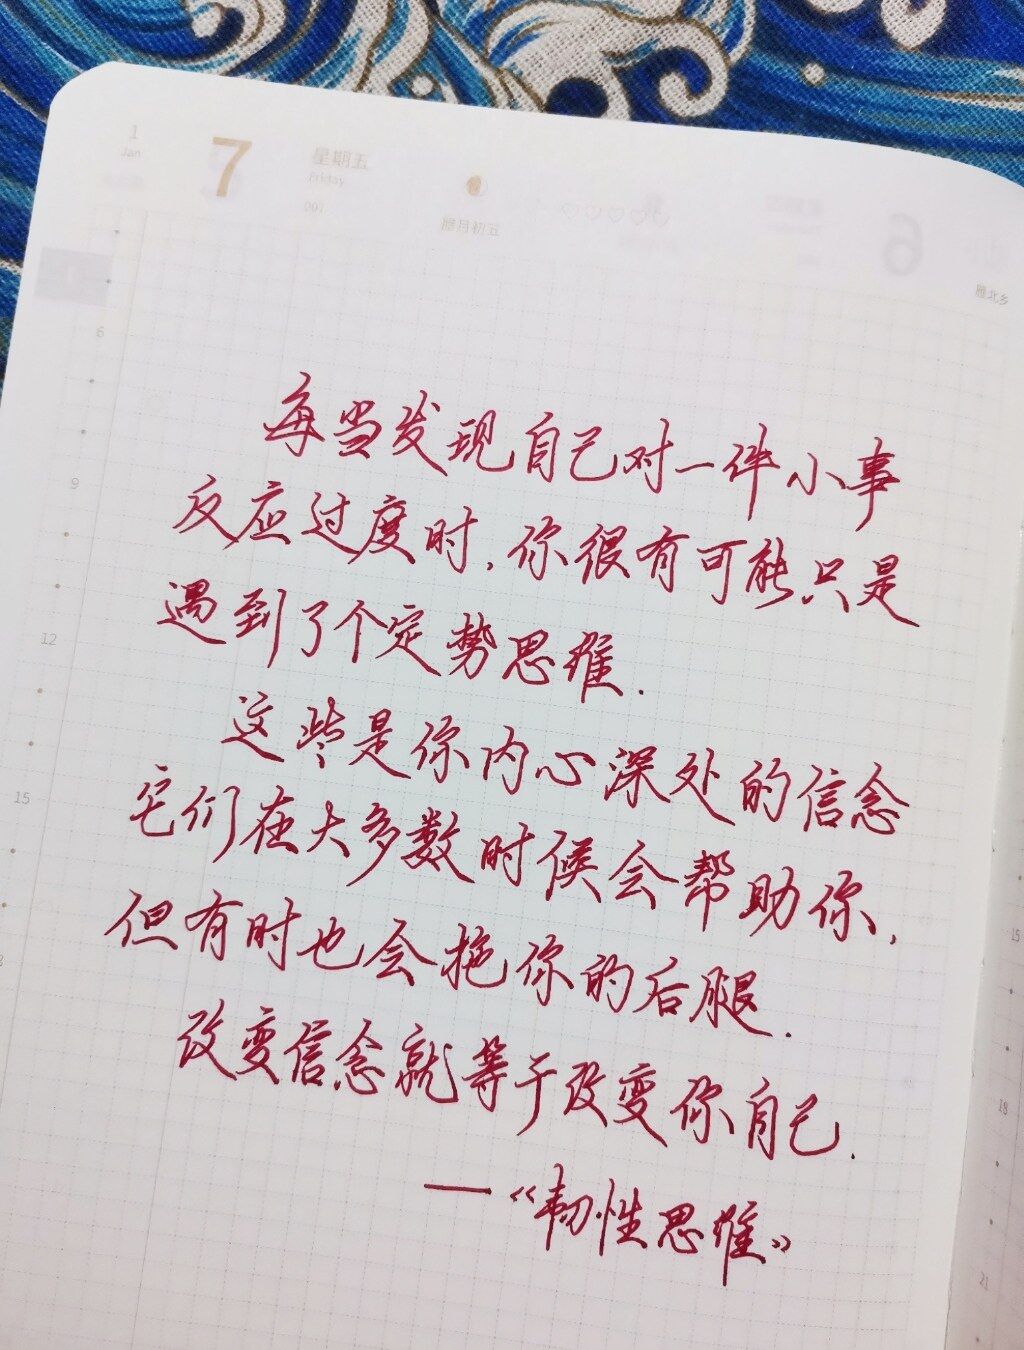 1
Jan
7
星期五
Friday
007
腊月初五
6
雁北乡
6
9
12
15
每当发现自己对一件小事
反应过度时,你很有可能只是
遇到了个定势思维.
这些是你内心深处的信念
它们在大多数时候会帮助你,
但有时也会拖你的后腿.
改变信念就等于改变你自己.
—《韧性思维》
15
18
21